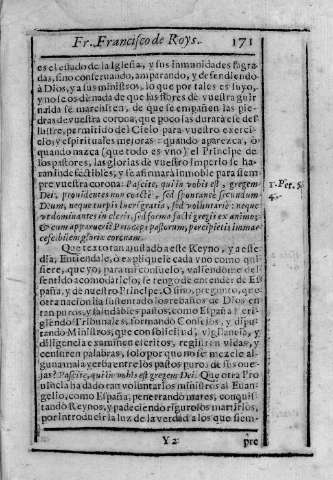 Fr. Francisco de Roys. 171
es el estado de la Iglesia, y sus inmunidades sagra-
das, sino conseruando, amparando, y defendiendo
à Dios, ya sus ministros, lo que por tales es suyo,
y no se os dè nada de que las flores de vuestra guir
nalda se marchiten, de que se empañen las pie
dras de vuestra corona, que poco las durarà ese des
lustre, permitido del Cielo para vuestro exerci-
cio, y espirituales mejoras: quando aparezca, o
quando nazca (que todo es vno) el Principe de
los pastores, las glorias de vuestro Imperio se ha-
ran indefectibles, y se afirmarà inmoble para siem
pre vuestra corona: Pascite, qui in vobis est, gregem
Dei, prouidentes non coactè, sed spontanee secundum
Deum, neque turpis lucri gratia, sed voluntariè: neque
vt dominantes in cleris, sed forma facti gregis ex animo:
& cum apparuerit Princeps pastorum, percipietis immar
cescibilem gloriæ coronam.
1. Pet. 5.
4.
Que texto tan ajustado a este Reyno, y a este
dia, Entiendale, o expliquele cada vno como qui
siere, que yo, para mi consuelo, valiendome del
sentido acomodaticio, le tengo de entender de Es
paña, y de nuestro Principe. O sino, pregunto, que
otra nacion ha sustentado los rebaños de Dios en
tan puros, y saludables pastos, como España? eri-
giendo Tribunales, formando Consejos, y dispu-
tando Ministros, que con solicitud, vigilancia, y
diligencia examinen escritos, registren vidas, y
censuren palabras, solo por que no se mezcle al-
guna mala yerba entre los pastos puros de sus oue-
jas? Pascite, qui in vobis est gregem Dei. Que otra Pro
uincia ha dado tan voluntarios ministros al Euan-
gelio, como España, penetrando mares, conquis-
tando Reynos, y padeciendo rigurosos martirios,
por introducir la luz de la verdad a los que siem-
Y 2 pre